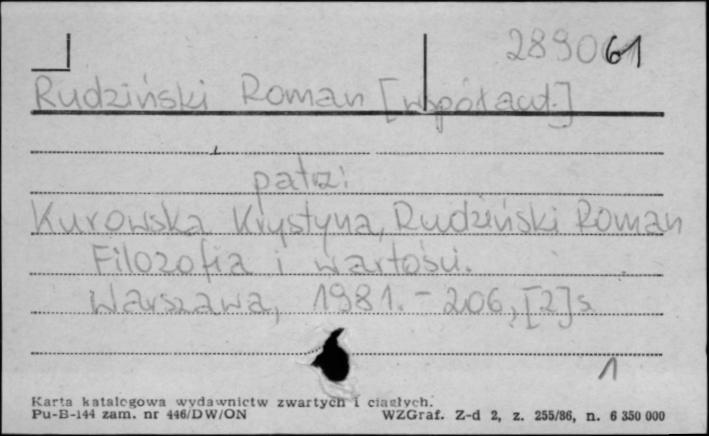 289061
Rudziński Roman [współaut.]
patrz:
Kurowska Krystyna, Rudziński Roman
Filozofia i wartości.
Warszawa, 1981. - 206, [2] s.
1
Karta katalogowa wydawnictw zwartych i ciągłych.
Pu-B-144 zam. nr 446/DW/ON WZGraf. Z-d 2, z. 255/86, n. 6 350 000